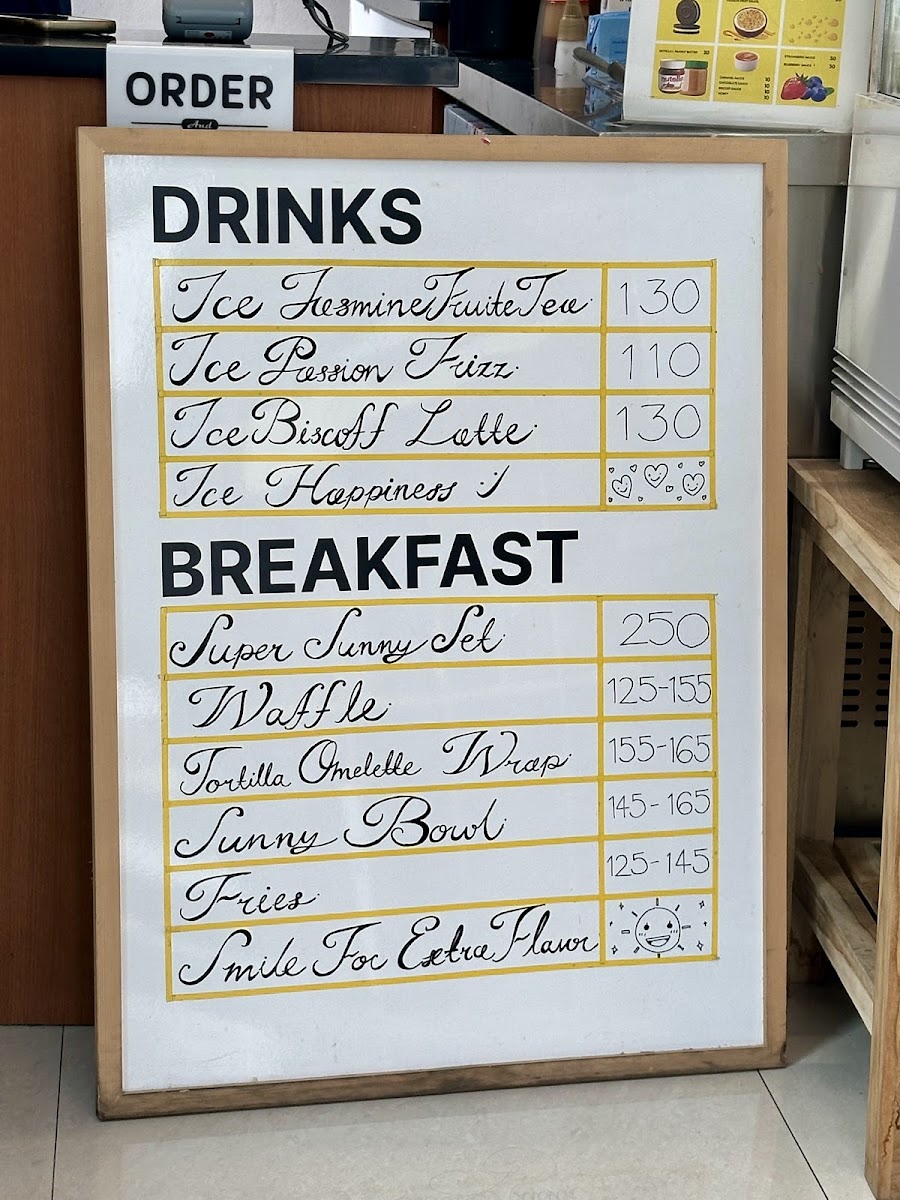 ORDER
And
DRINKS
Ice Jasmine Fruite Tea 130
Ice Passion Frizz 110
Ice Biscoff Latte 130
Ice Happiness :)
BREAKFAST
Super Sunny Set 250
Waffle 125-155
Tortilla Omelette Wrap 155-165
Sunny Bowl 145-165
Fries 125-145
Smile For Extra Flavor